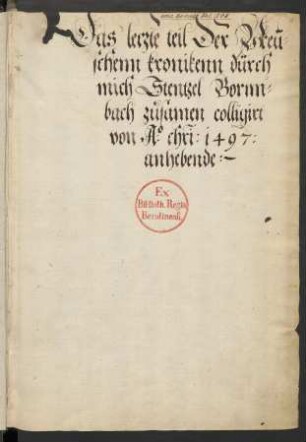 Das letzte teil Der Preu
schenn kronikenn dürch
mich Stentzel Bornn-
bach züsamen colligirt
von Aº chri: 1497:
anhebende:~
Ex
Biblioth. Regia
Berolinensi.